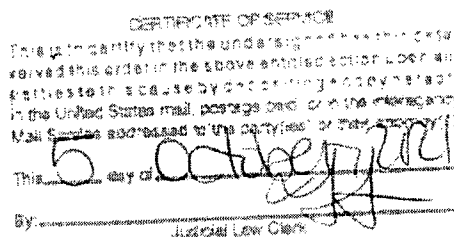 CERTIFICATE OF SERVICE
This is to certify that the undersigned has this day
served this order in the above entitled action upon all
parties to this cause by depositing a copy hereof
in the United States mail, postage paid, or in the interagency
Mail Service addressed to the party(ies) or their attorney
This 5 day of October, 2021
By:
Judicial Law Clerk